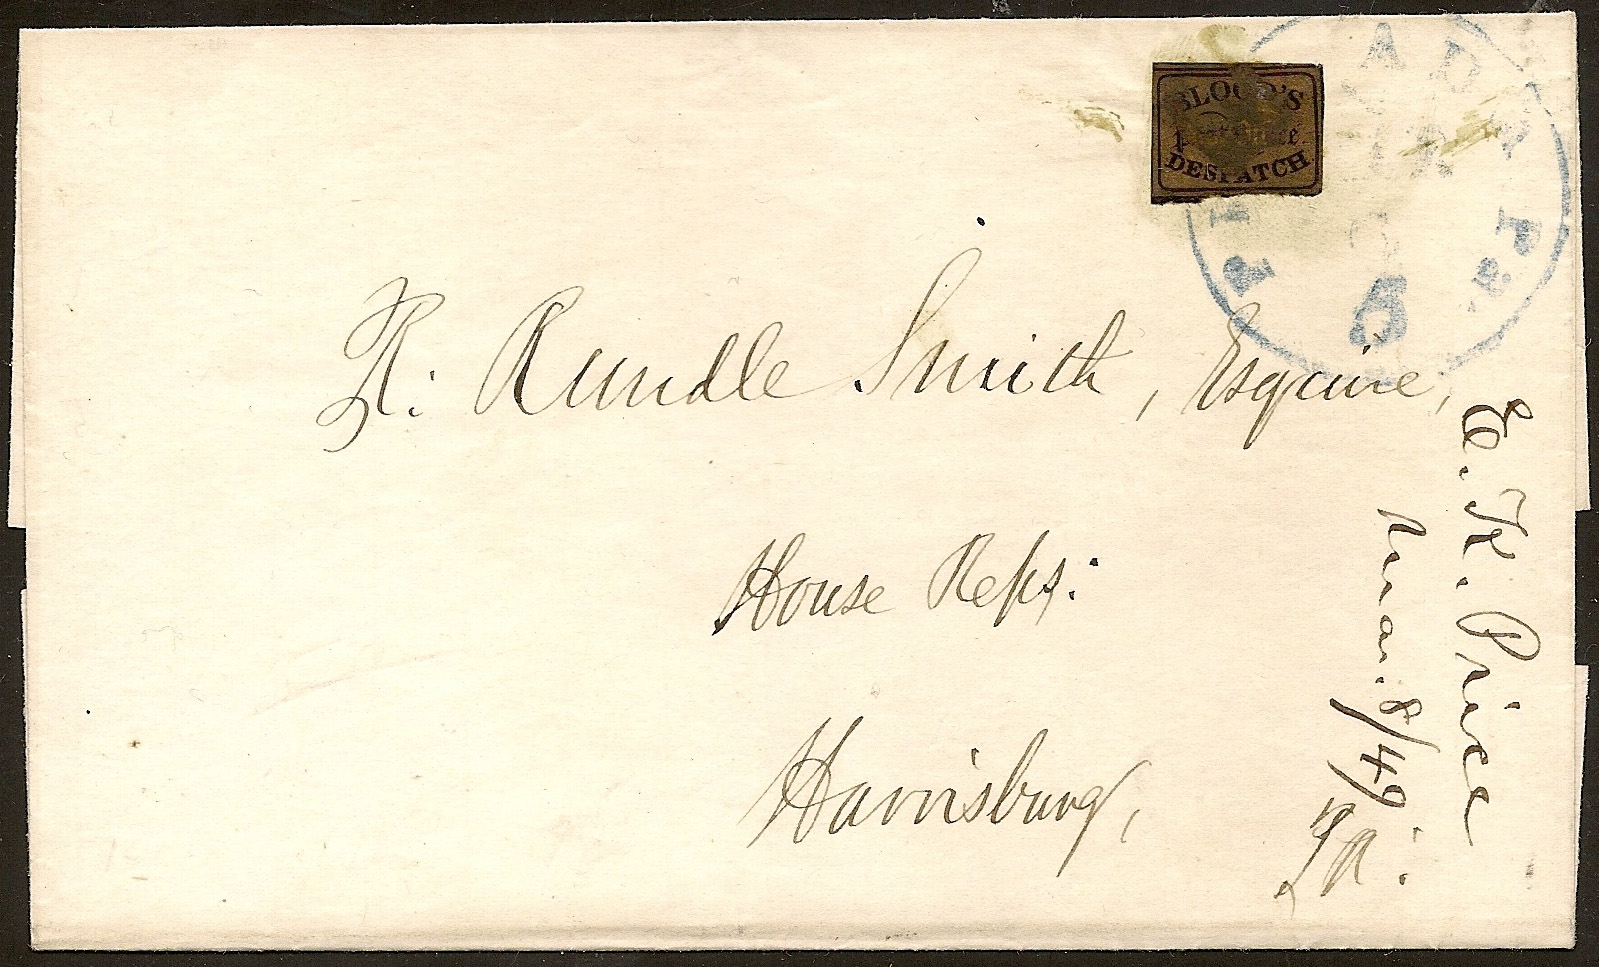 BLOOD'S
DESPATCH
5
R. Rundle Smith, Esquire,
House Reps:
Harrisburg,
Pa.
E. K. Price
Mar. 8/49